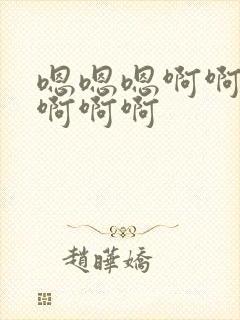 嗯嗯嗯啊啊
啊啊啊
趙曄嬌